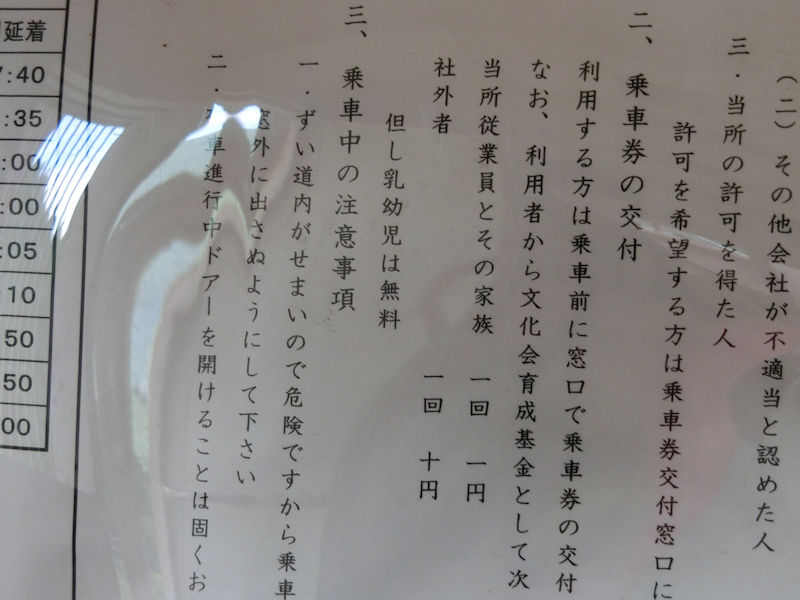 (二) その他会社が不適当と認めた人
三．当所の許可を得た人
許可を希望する方は乗車券交付窓口に
二、乗車券の交付
利用する方は乗車前に窓口で乗車券の交付
なお、利用者から文化会育成基金として次
当所従業員とその家族 一回 一円
社外者 一回 十円
但し乳幼児は無料
三、乗車中の注意事項
一．ずい道内がせまいので危険ですから乗車
窓外に出さぬようにして下さい
二．車進行中ドアーを開けることは固くお
延着
:40
:35
:00
:00
:05
:10
50
50
00